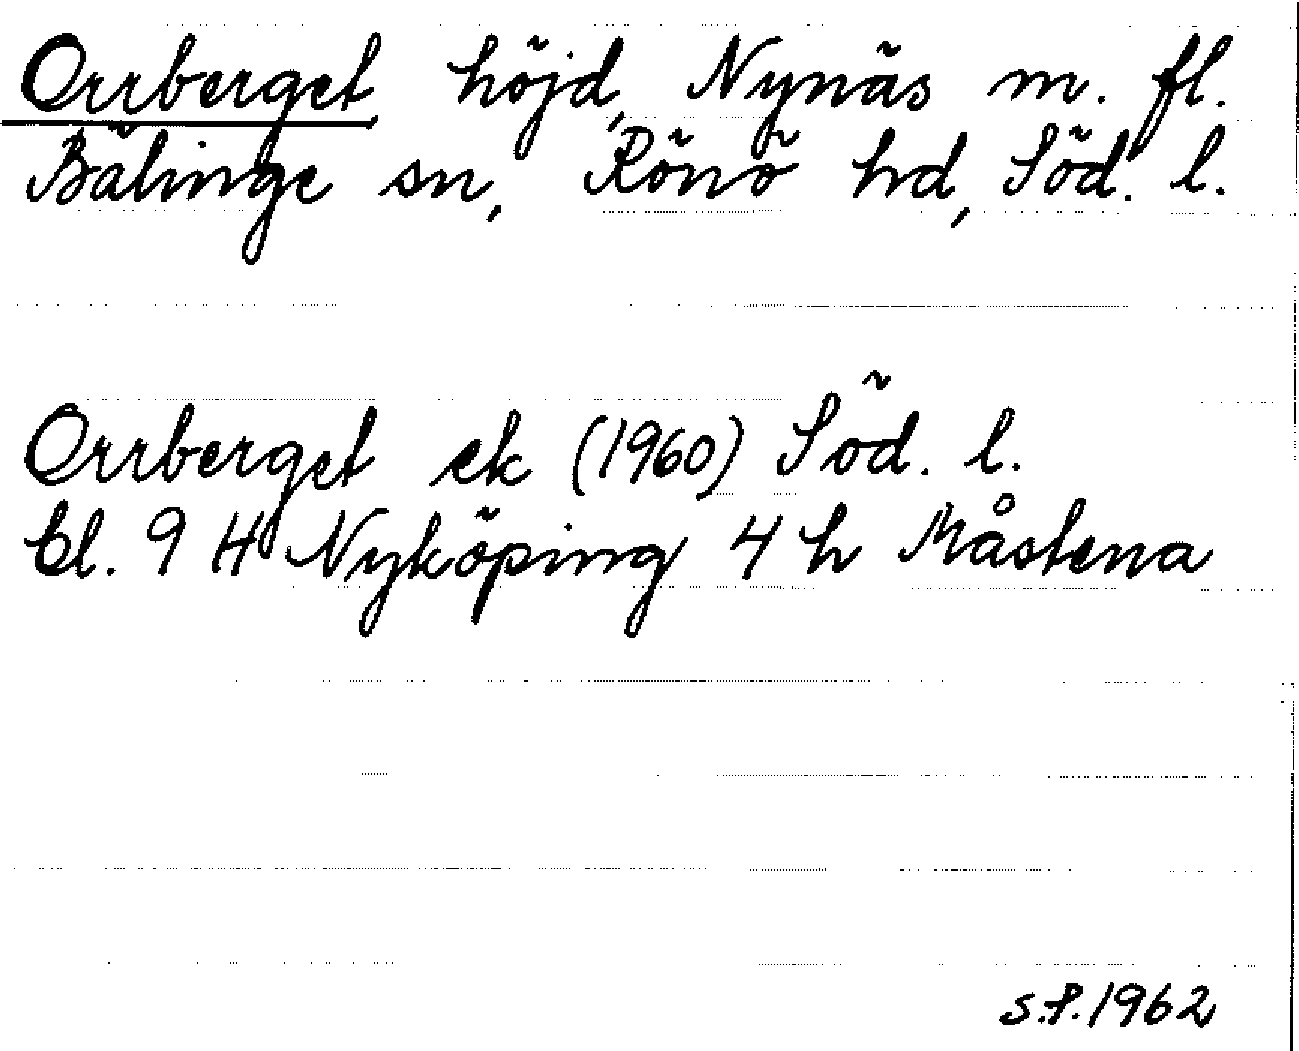 Orrberget höjd, Nynäs m. fl.
Bälinge sn, Rönö hd, Söd. l.
Orrberget ek (1960) Söd. l.
bl. 9 H Nyköping 4 h Måstena
S.P. 1962